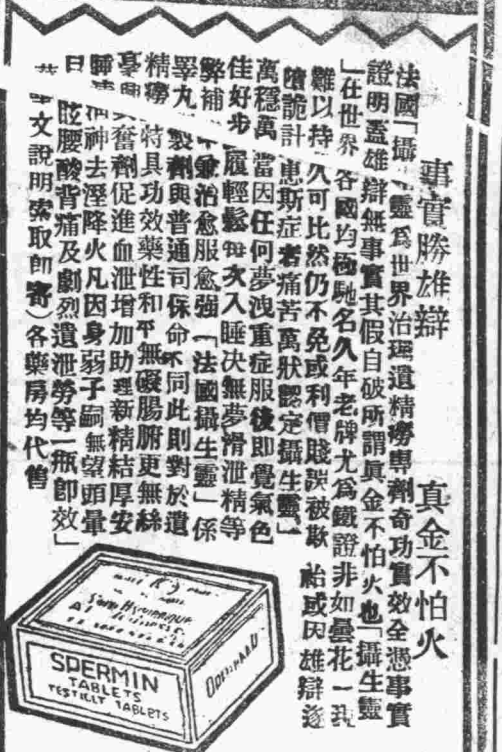 事實勝雄辯 真金不怕火
法國「攝靈爲世界治理遺精癆專劑奇功實效全憑事實
證明蓋雄辯無事實其假自破所謂眞金不怕火也「攝生靈
」在世界各國均極馳名久年老牌尤爲鐵證非如曇花一現
難以持久可比然仍不免或利價賤誤被欺紿或因雄辯遂
墮詭計患斯症者痛苦萬狀認定攝生靈、」
萬穩萬當因任何夢洩重症服後即覺氣色
佳好步履輕鬆每次入睡决無夢滑泄精等
弊補兼治愈服愈強「法國攝生靈」係
睪九製劑與普通司保命不同此則對於遺
精癆特具功效藥性和平無礙腸腑更無絲
毫興奮劑促進血泄增加助理新精結厚安
神去溼降火凡因身弱子嗣無望頭暈
目眩腰酸背痛及劇烈遺泄勞等一瓶卽效」
文說明索取卽寄）各藥房均代售
SPERMIN
TABLETS
TESTICLT TABLETS